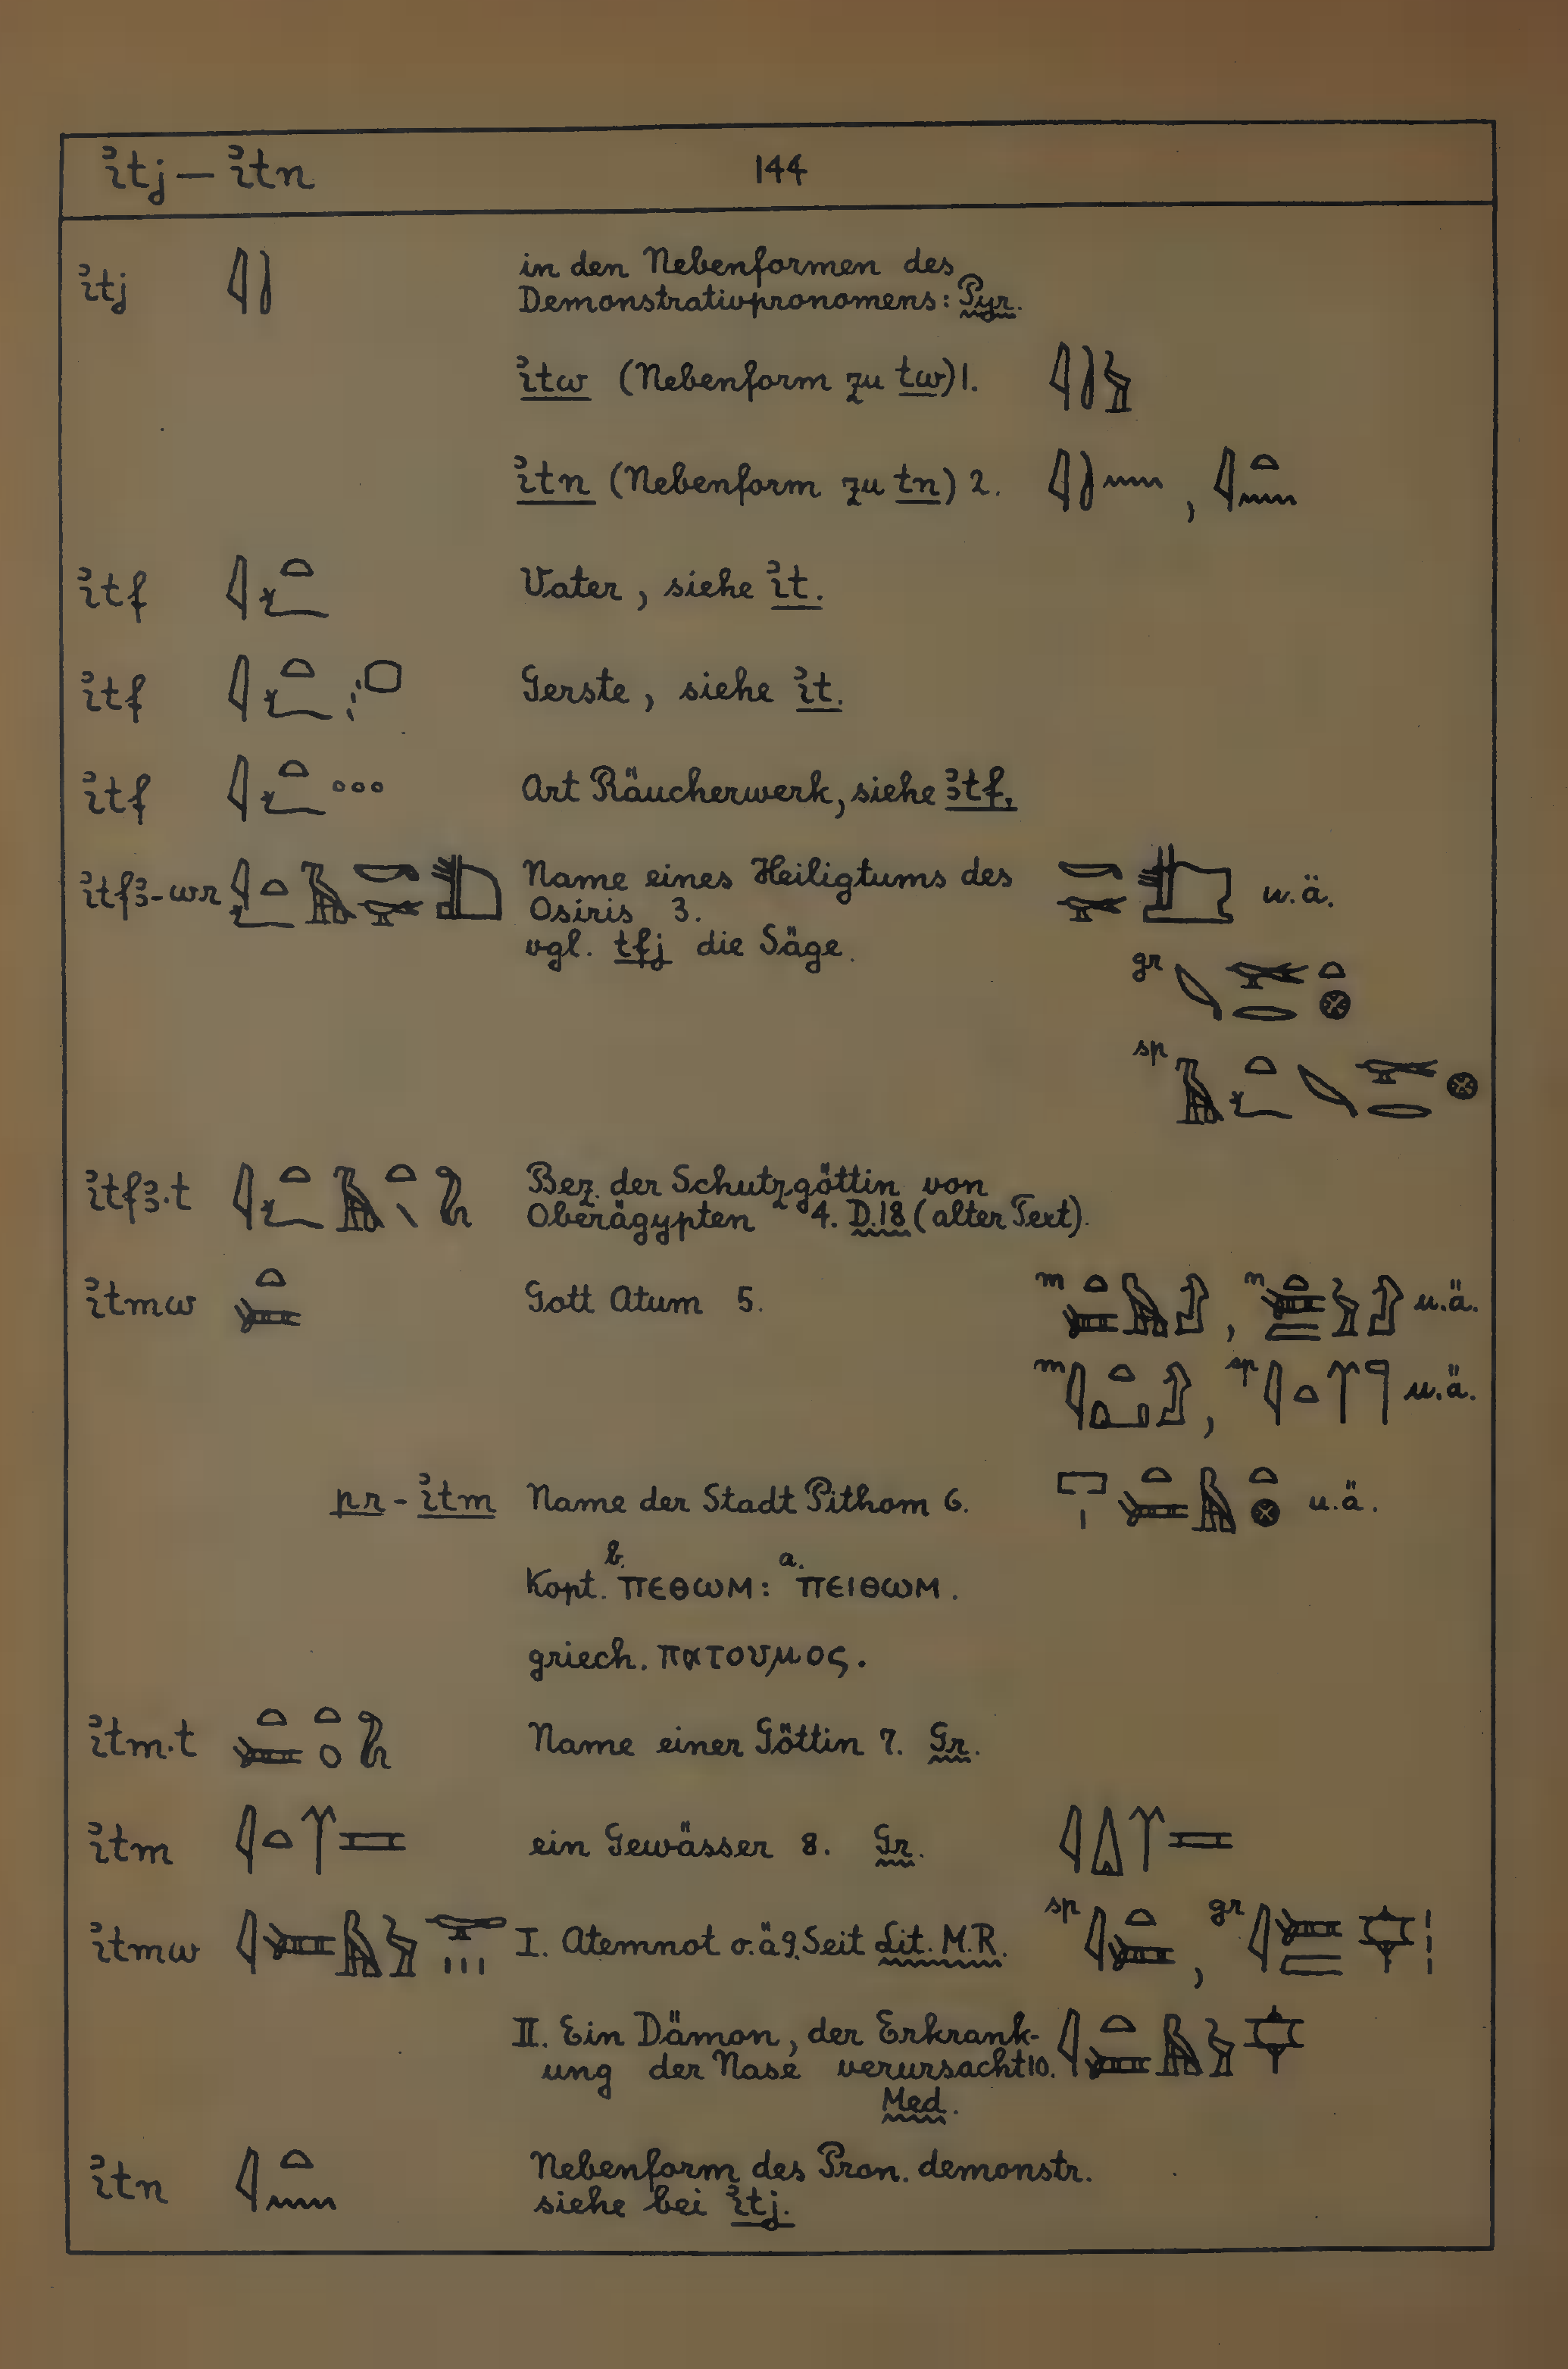 ꞽtj — ꞽtn 144
ꞽtj in den Nebenformen des
Demonstrativpronomens: Pyr.
ꞽtw (Nebenform zu tw) 1.
ꞽtn (Nebenform zu tn) 2. ,
ꞽtf Vater, siehe ꞽt.
ꞽtf Gerste, siehe ꞽt.
ꞽtf Art Räucherwerk, siehe ꜣtf.
ꞽtfꜣ-wr Name eines Heiligtums des u.ä.
Osiris 3.
vgl. tfj die Säge.
gr
sp
ꞽtfꜣ.t Bez. der Schutzgöttin von
Oberägypten 4. D.18 (alter Text).
ꞽtmw Gott Atum 5. m , n u.ä.
m , sp u.ä.
pr-ꞽtm Name der Stadt Pithom 6. u.ä.
Kopt. b. ⲡⲉⲑⲱⲙ: a. ⲡⲉⲓⲑⲱⲙ.
griech. πατουμος.
ꞽtm.t Name einer Göttin 7. Gr.
ꞽtm ein Gewässer 8. Gr.
ꞽtmw I. Atemnot o.ä 9. Seit Lit. M.R. sp , gr
II. Ein Dämon, der Erkrank-
ung der Nase verursacht 10.
Med.
ꞽtn Nebenform des Pron. demonstr.
siehe bei ꞽtj.